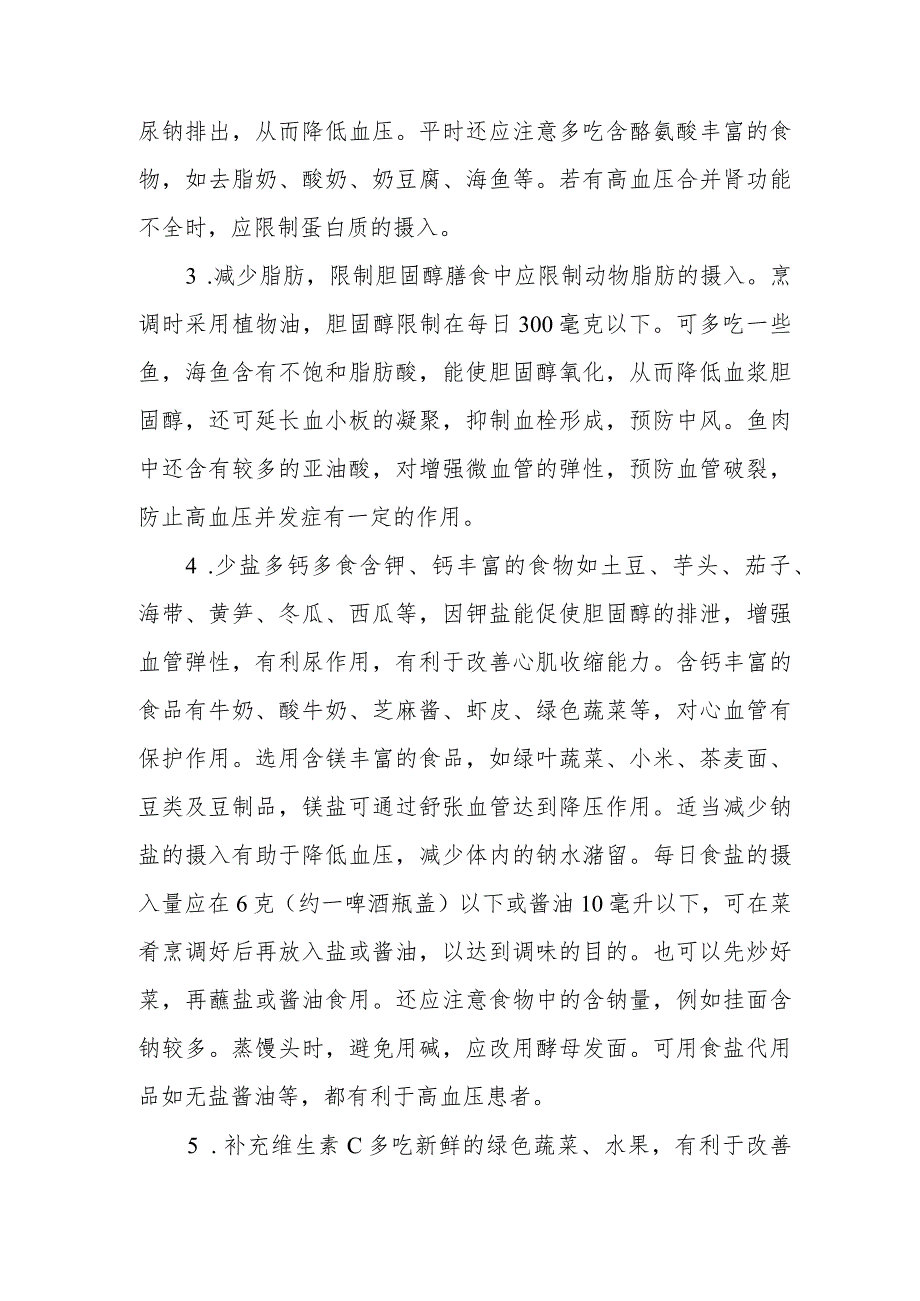 尿钠排出，从而降低血压。平时还应注意多吃含酪氨酸丰富的食
物，如去脂奶、酸奶、奶豆腐、海鱼等。若有高血压合并肾功能
不全时，应限制蛋白质的摄入。
3 .减少脂肪，限制胆固醇膳食中应限制动物脂肪的摄入。烹
调时采用植物油，胆固醇限制在每日300毫克以下。可多吃一些
鱼，海鱼含有不饱和脂肪酸，能使胆固醇氧化，从而降低血浆胆
固醇，还可延长血小板的凝聚，抑制血栓形成，预防中风。鱼肉
中还含有较多的亚油酸，对增强微血管的弹性，预防血管破裂，
防止高血压并发症有一定的作用。
4 .少盐多钙多食含钾、钙丰富的食物如土豆、芋头、茄子、
海带、黄笋、冬瓜、西瓜等，因钾盐能促使胆固醇的排泄，增强
血管弹性，有利尿作用，有利于改善心肌收缩能力。含钙丰富的
食品有牛奶、酸牛奶、芝麻酱、虾皮、绿色蔬菜等，对心血管有
保护作用。选用含镁丰富的食品，如绿叶蔬菜、小米、茶麦面、
豆类及豆制品，镁盐可通过舒张血管达到降压作用。适当减少钠
盐的摄入有助于降低血压，减少体内的钠水潴留。每日食盐的摄
入量应在6克（约一啤酒瓶盖）以下或酱油10毫升以下，可在菜
肴烹调好后再放入盐或酱油，以达到调味的目的。也可以先炒好
菜，再蘸盐或酱油食用。还应注意食物中的含钠量，例如挂面含
钠较多。蒸馒头时，避免用碱，应改用酵母发面。可用食盐代用
品如无盐酱油等，都有利于高血压患者。
5 .补充维生素C多吃新鲜的绿色蔬菜、水果，有利于改善